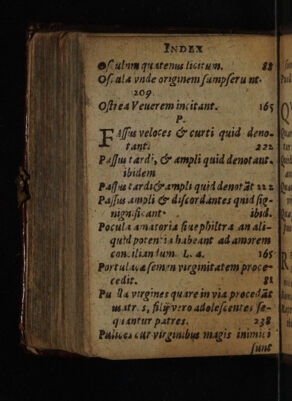 INDEX
Osculum quatenus licitum. 88
Oscula vnde originem sumpserunt.
209.
Ostrea Venerem incitant. 165
P.
Passus veloces & curti quid deno-
tant. 222
Passus tardi, & ampli quid denotant.
ibidem
Passus tardi & ampli quid denotāt 222
Passus ampli & discordantes quid sig-
nificant. ibid.
Pocula amatoria siue philtra an ali-
quid potentia habeant ad amorem
conciliandum. L. 4. 165
Portulaca semen virginitatem proce-
cedit. 81
Puella virgines quare in via procedāt
matres, filij vero adolescentes se-
quantur patres. 238
Pulices cur virginibus magis inimici
sunt